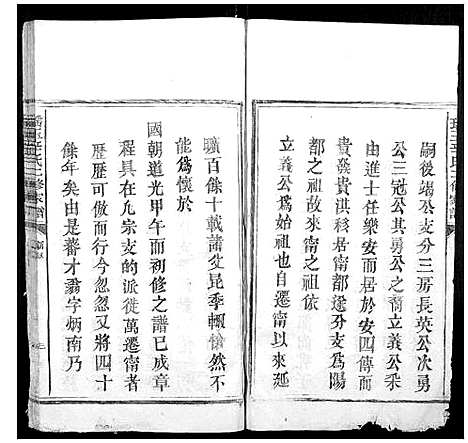 嗣後端公支分三房長英公次勇
公三冠公其勇公之裔立義公釆
公主任樂安而居於安四傳而
貴發貴淇移居甯都遂分支爲陽
甯之祖依
立義公爲始祖也自遷甯以來延
曠百餘十載諸父昆季輒愴然不
能爲懷於
國朝道光甲午而初修之譜已成章
程具在凡宗支的派徙萬遷甯者
歷歷可倣而行今忽忽又將四十
餘年矣由是蕃才翁字炳南乃